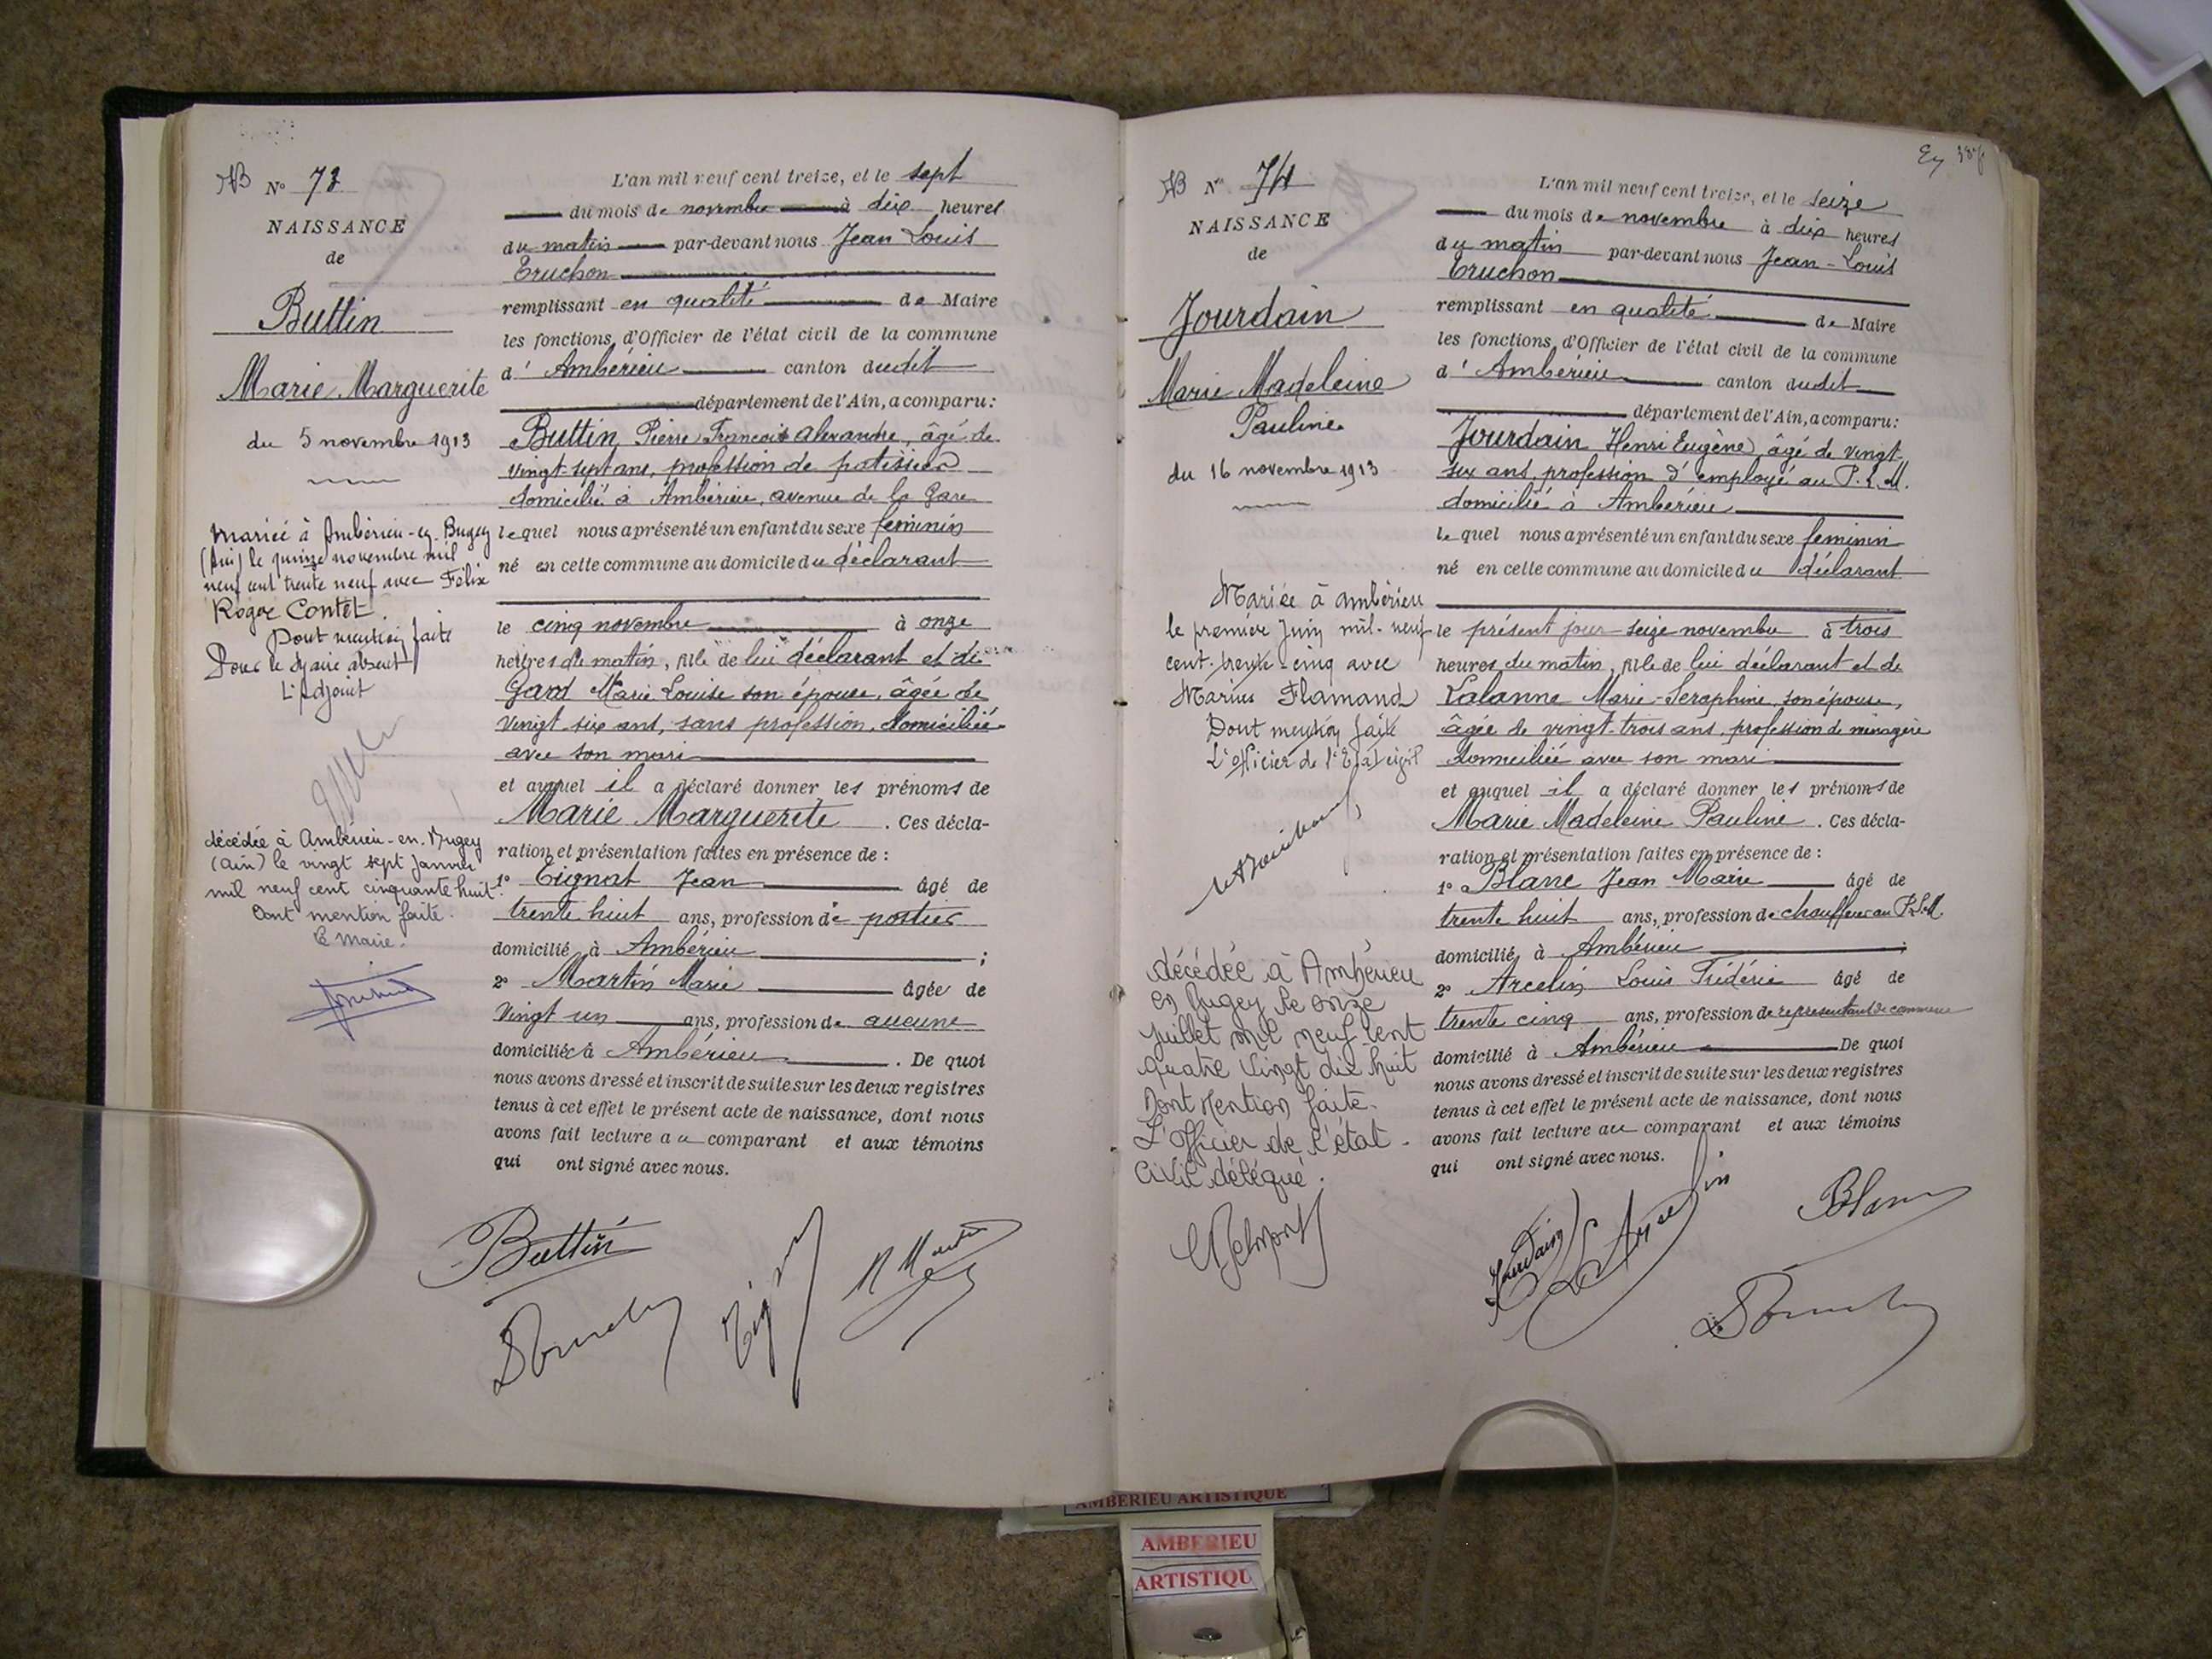 N° 73
NAISSANCE
de
Buttin
Marie Marguerite
du 5 novembre 1913
Mariée à Ambérieu-en-Bugey
(Ain) le quinze novembre mil
neuf cent trente neuf avec Félix
Roger Contet.
Dont mention faite
Pour le Maire absent
L'Adjoint
décédée à Ambérieu-en-Bugey
(Ain) le vingt sept janvier
mil neuf cent cinquante huit.
Dont mention faite.
Le Maire.
L'an mil neuf cent treize, et le sept
du mois de novembre à dix heures
du matin par-devant nous Jean Louis
Truchon
remplissant en qualité de Maire
les fonctions d'Officier de l'état civil de la commune
d'Ambérieu canton dudit
département de l'Ain, a comparu:
Buttin, Pierre François Alexandre, âgé de
vingt-sept ans, profession de patissier
domicilié à Ambérieu, avenue de la Gare
lequel nous a présenté un enfant du sexe féminin
né en cette commune au domicile du déclarant
le cinq novembre à onze
heures du matin, fille de lui déclarant et de
Gard Marie Louise son épouse, âgée de
vingt six ans, sans profession, domiciliée
avec son mari
et auquel il a déclaré donner les prénoms de
Marie Marguerite. Ces décla-
ration et présentation faites en présence de :
1° Tignat Jean âgé de
trente huit ans, profession de postier
domicilié à Ambérieu ;
2° Martin Marie âgée de
Vingt un ans, profession de aucune
domiciliée à Ambérieu. De quoi
nous avons dressé et inscrit de suite sur les deux registres
tenus à cet effet le présent acte de naissance, dont nous
avons fait lecture au comparant et aux témoins
qui ont signé avec nous.
Buttin
N° 74
NAISSANCE
de
Jourdain
Marie Madeleine
Pauline
du 16 novembre 1913
Mariée à Ambérieu
le premier Juin mil-neuf
cent-trente-cinq avec
Marius Flamand
Dont mention faite
L'officier de l'Etat civil
décédée à Ambérieu
en Bugey le onze
juillet mil neuf cent
quatre vingt dix huit
Dont mention faite.
L'officier de l'état
civil délégué.
L'an mil neuf cent treize, et le seize
du mois de novembre à dix heures
du matin par-devant nous Jean-Louis
Truchon
remplissant en qualité de Maire
les fonctions d'Officier de l'état civil de la commune
d'Ambérieu canton dudit
département de l'Ain, a comparu:
Jourdain, Henri Eugène, âgé de vingt-
six ans, profession d'employé au P.L.M.
domicilié à Ambérieu
lequel nous a présenté un enfant du sexe féminin
né en cette commune au domicile du déclarant
le présent jour seize novembre à trois
heures du matin, fille de lui déclarant et de
Lalanne Marie-Seraphine, son épouse,
âgée de vingt-trois ans, profession de ménagère
domiciliée avec son mari
et auquel il a déclaré donner les prénoms de
Marie Madeleine Pauline. Ces décla-
ration et présentation faites en présence de :
1° Blanc Jean Marie âgé de
trente huit ans, profession de chauffeur au P.L.M.
domicilié à Ambérieu ;
2° Arcelin Louis Frédéric âgé de
trente cinq ans, profession de représentant de commerce
domicilié à Ambérieu De quoi
nous avons dressé et inscrit de suite sur les deux registres
tenus à cet effet le présent acte de naissance, dont nous
avons fait lecture au comparant et aux témoins
qui ont signé avec nous.
Jourdain
Arcelin
Blanc
AMBERIEU ARTISTIQUE
AMBERIEU
ARTISTIQU